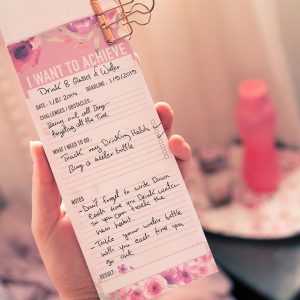 I WANT TO ACHIEVE
Drink 8 Glasses of Water
DATE: 1/8/2019 DEADLINE: 1/15/2019
CHALLENGES / OBSTACLES:
Being out all Day
forgetting all the Time
WHAT I NEED TO DO:
Track my Drinking Habits
Buy a water bottle
NOTES:
- Don't forget to write Down
Each time you Drink water
so you can track the
new habit.
- Take your water bottle
with you each time you
go out.
RESULT: